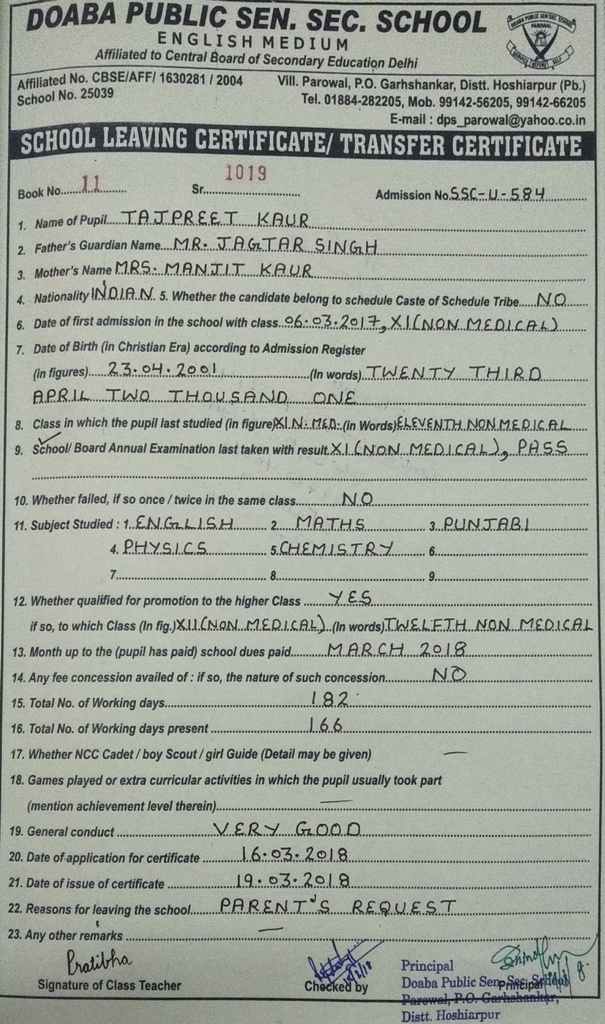 DOABA PUBLIC SEN. SEC. SCHOOL
ENGLISH MEDIUM
Affiliated to Central Board of Secondary Education Delhi
Affiliated No. CBSE/AFF/ 1630281 / 2004
School No. 25039
Vill. Parowal, P.O. Garhshankar, Distt. Hoshiarpur (Pb.)
Tel. 01884-282205, Mob. 99142-56205, 99142-66205
E-mail : dps_parowal@yahoo.co.in
SCHOOL LEAVING CERTIFICATE/ TRANSFER CERTIFICATE
Book No. 11 Sr. 1019 Admission No. SSC-U-584
1. Name of Pupil TAJPREET KAUR
2. Father's Guardian Name MR. JAGTAR SINGH
3. Mother's Name MRS. MANJIT KAUR
4. Nationality INDIAN 5. Whether the candidate belong to schedule Caste of Schedule Tribe NO
6. Date of first admission in the school with class 06.03.2017, XI (NON MEDICAL)
7. Date of Birth (in Christian Era) according to Admission Register
(in figures) 23.04.2001 (In words) TWENTY THIRD
APRIL TWO THOUSAND ONE
8. Class in which the pupil last studied (in figure) XI N. MED. (in Words) ELEVENTH NON MEDICAL
9. School/ Board Annual Examination last taken with result XI (NON MEDICAL), PASS
10. Whether failed, if so once / twice in the same class NO
11. Subject Studied : 1. ENGLISH 2. MATHS 3. PUNJABI
4. PHYSICS 5. CHEMISTRY 6.
7. 8. 9.
12. Whether qualified for promotion to the higher Class YES
if so, to which Class (In fig.) XII (NON MEDICAL) (In words) TWELFTH NON MEDICAL
13. Month up to the (pupil has paid) school dues paid MARCH 2018
14. Any fee concession availed of : if so, the nature of such concession NO
15. Total No. of Working days 182
16. Total No. of Working days present 166
17. Whether NCC Cadet / boy Scout / girl Guide (Detail may be given) —
18. Games played or extra curricular activities in which the pupil usually took part
(mention achievement level therein) —
19. General conduct VERY GOOD
20. Date of application for certificate 16.03.2018
21. Date of issue of certificate 19.03.2018
22. Reasons for leaving the school PARENT'S REQUEST
23. Any other remarks —
Pratibha
Signature of Class Teacher
Checked by
Principal
Principal
Doaba Public Sen. Sec. School
Parowal, P.O. Garhshankar,
Distt. Hoshiarpur